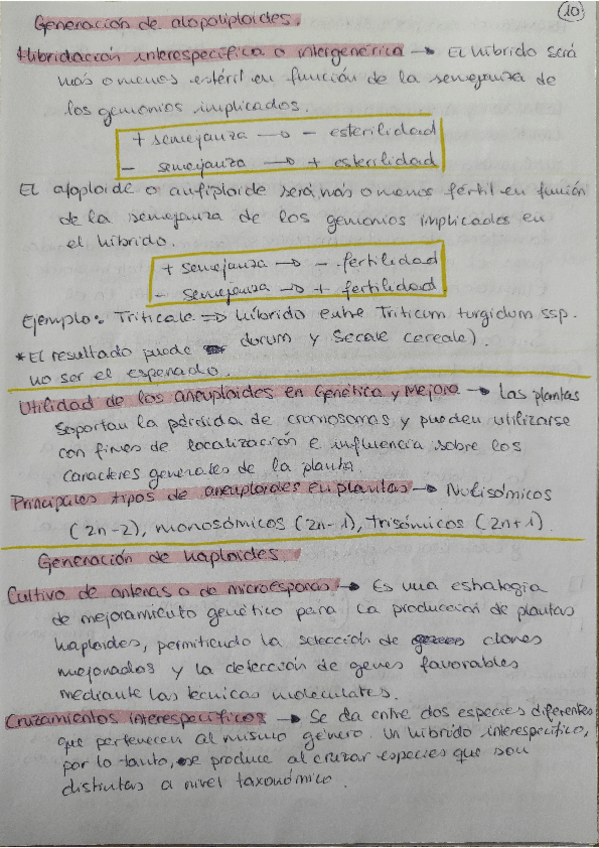 10
Generación de alopoliploides.
Hibridación interespecífica o intergenérica → El híbrido será
más o menos estéril en función de la semejanza de
los genomios implicados.
+ semejanza → - esterilidad
- semejanza → + esterilidad
El aloploide o anfiploide será más o menos fértil en función
de la semejanza de los genomios implicados en
el híbrido.
+ semejanza → - fertilidad
- semejanza → + fertilidad.
Ejemplo: Triticale => híbrido entre Triticum turgidum ssp.
*El resultado puede durum y Secale cereale).
no ser el esperado.
Utilidad de los aneuploides en Genética y Mejora → Las plantas
soportan la pérdida de cromosomas y pueden utilizarse
con fines de localización e influencia sobre los
caracteres generales de la planta.
Principales tipos de aneuploides en plantas → Nulisómicos
(2n-2), monosómicos (2n-1), trisómicos (2n+1).
Generación de haploides.
Cultivo de anteras o de microesporas → Es una estrategia
de mejoramiento genético para la producción de plantas
haploides, permitiendo la selección de clones
mejorados y la detección de genes favorables
mediante las técnicas moleculares.
Cruzamientos interespecíficos → Se da entre dos especies diferentes
que pertenecen al mismo género. Un híbrido interespecífico,
por lo tanto, se produce al cruzar especies que son
distintas a nivel taxonómico.